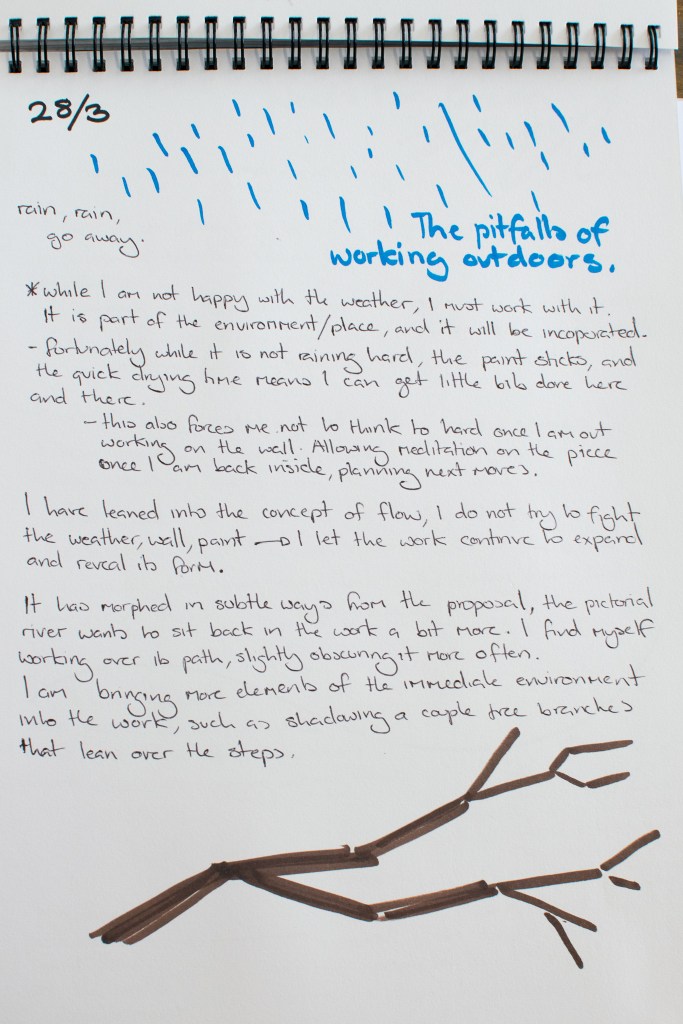 28/3
rain, rain,
go away.
The pitfalls of
working outdoors.
*while I am not happy with the weather, I must work with it.
It is part of the environment/place, and it will be incoperated.
- fortunately while it is not raining hard, the paint sticks, and
the quick drying time means I can get little bits done here
and there.
- this also forces me not to think to hard once I am out
working on the wall. Allowing meditation on the piece
once I am back inside, planning next moves.
I have leaned into the concept of flow, I do not try to fight
the weather, wall, paint → I let the work continue to expand
and reveal its form.
It has morphed in subtle ways from the proposal, the pictorial
river wants to sit back in the work a bit more. I find myself
working over its path, slightly obscuring it more often.
I am bringing more elements of the immediate environment
into the work, such as shadowing a couple tree branches
that lean over the steps.